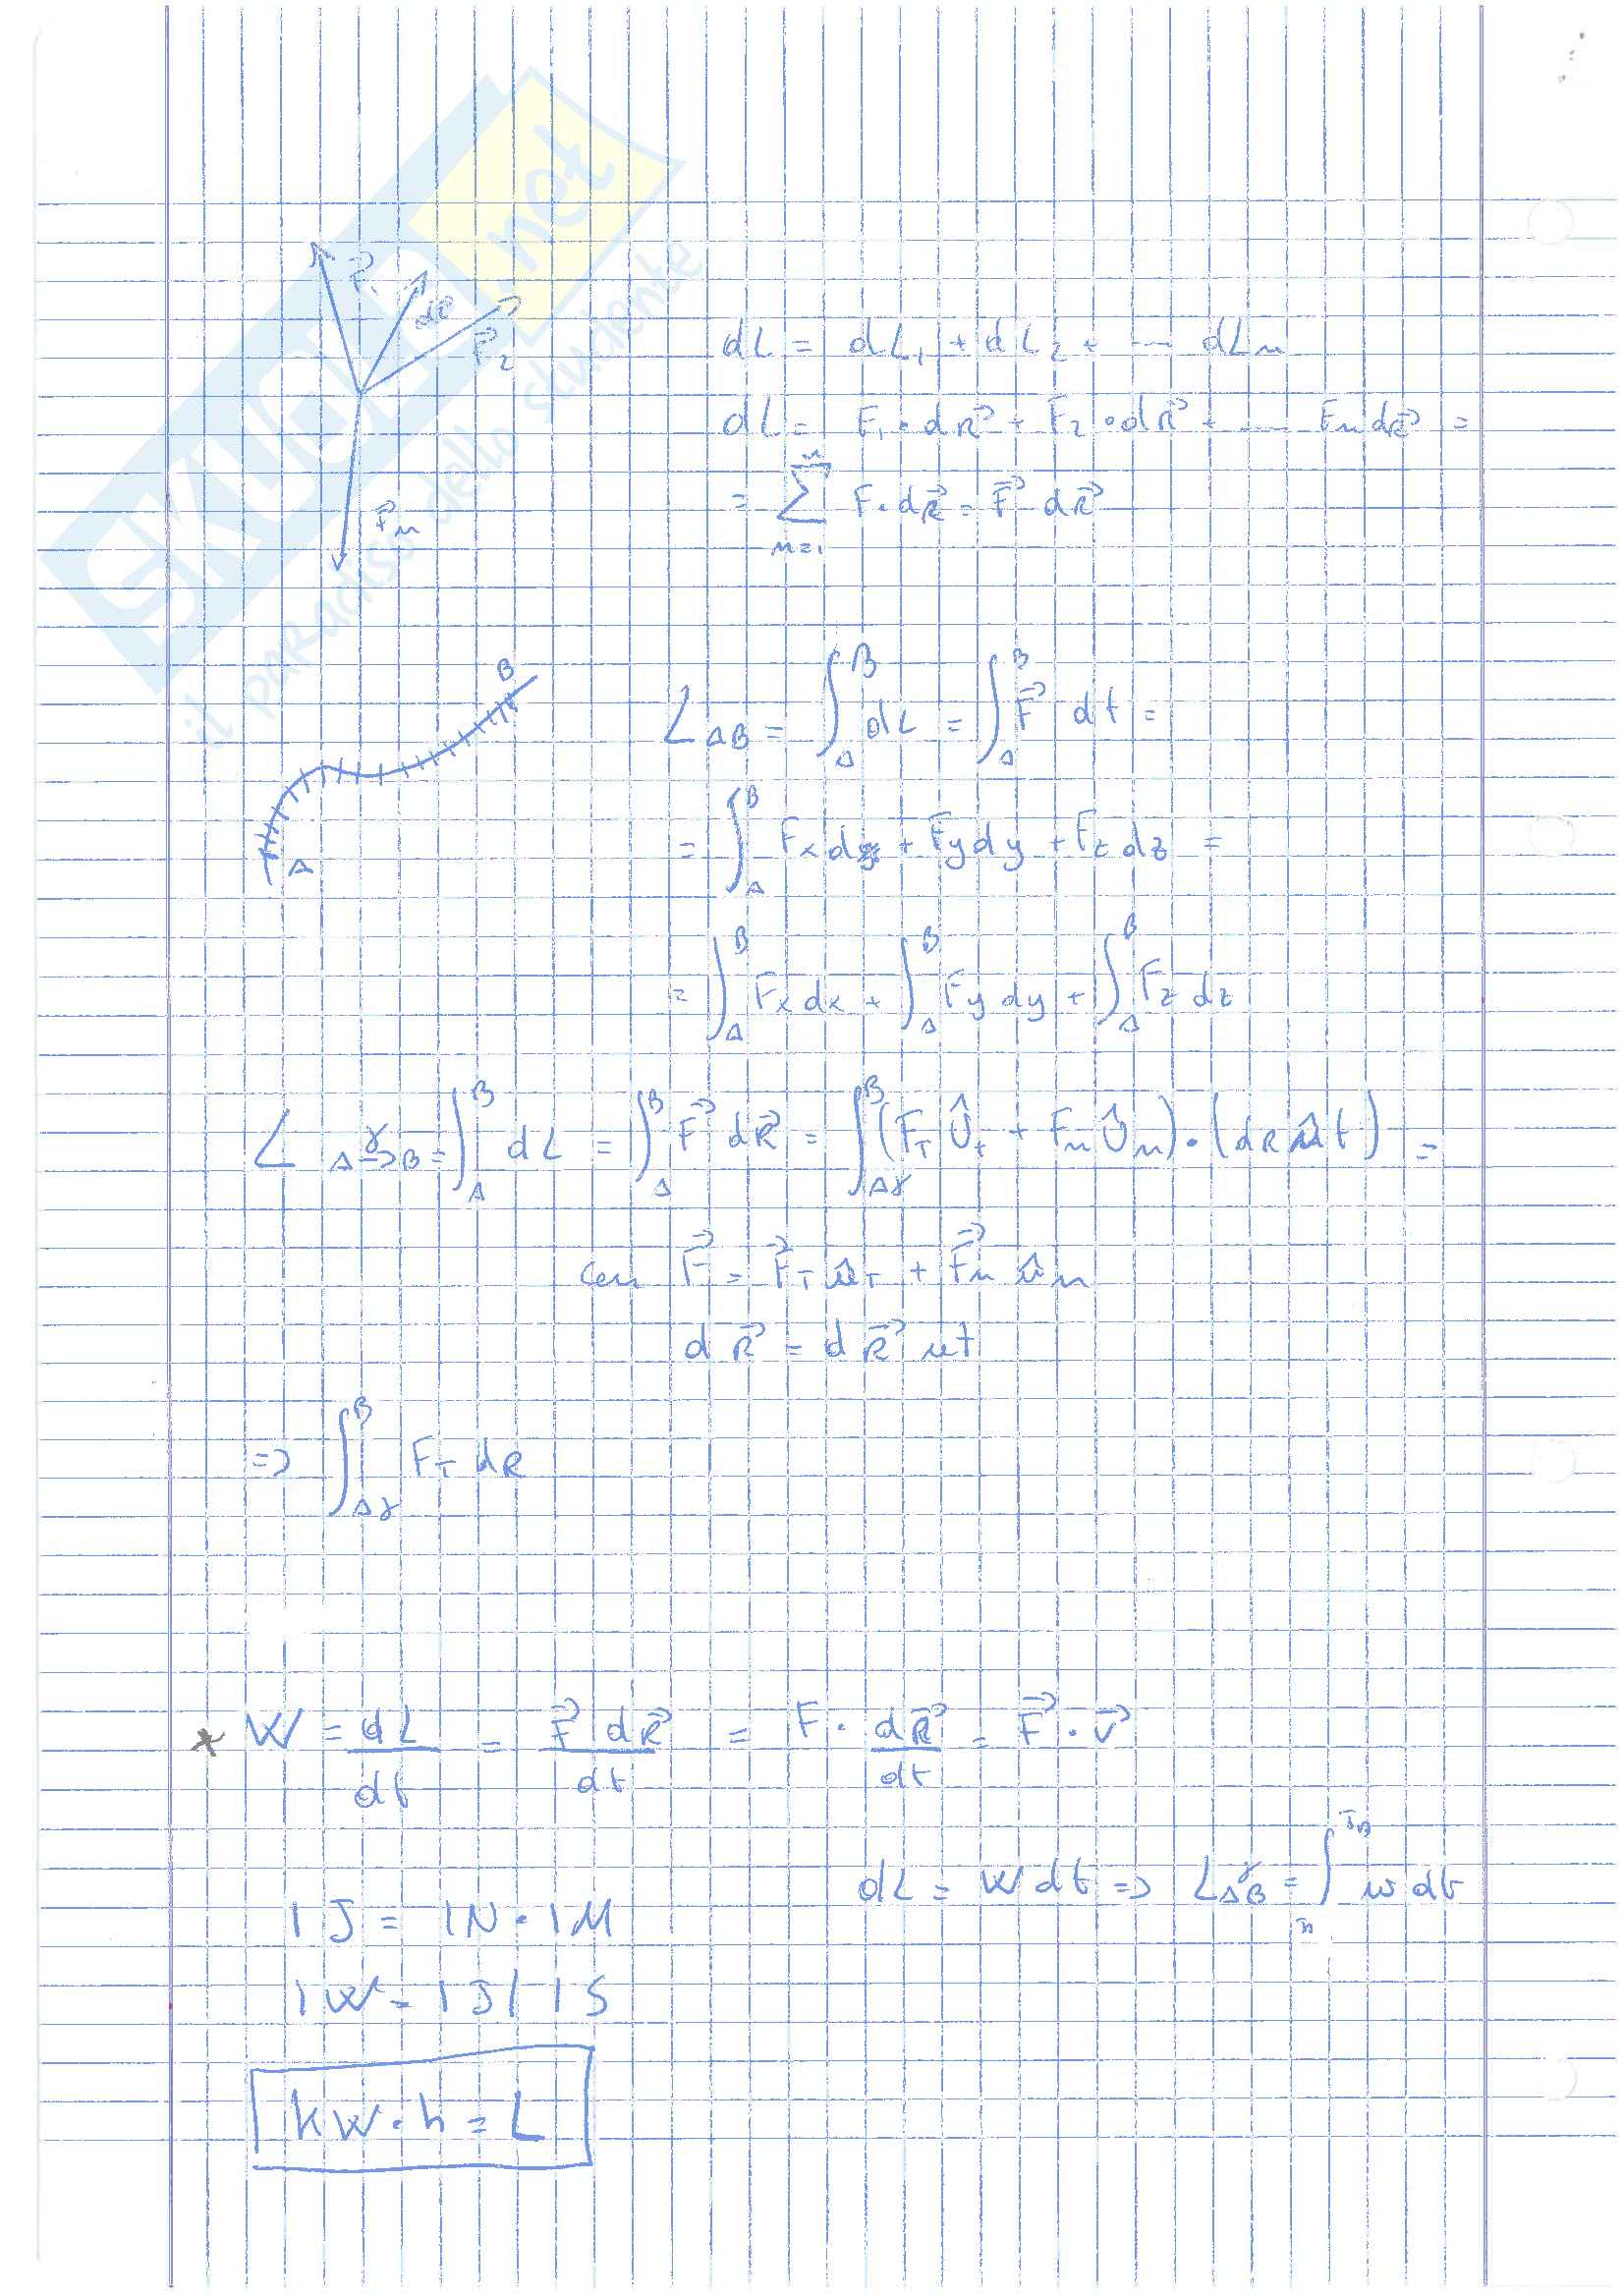 SKUOLA.net
il paradiso dello studente
F⃗₁ dR⃗ F⃗₂
F⃗n
dL = dL₁ + dL₂ + ---- dLn
dL = F₁·dR⃗ + F₂·dR⃗ + .... Fn dR⃗ =
= ∑ⁿₙ₌₁ F·dR⃗ = F⃗ dR⃗
A B
L_AB = ∫_A^B dL = ∫_A^B F⃗ dt =
= ∫_A^B Fx dx + Fy dy + Fz dz =
= ∫_A^B Fx dx + ∫_A^B Fy dy + ∫_A^B Fz dz
L_A→^γB = ∫_A^B dL = ∫_A^B F⃗ dR⃗ = ∫_Aγ^B (F_T Û_t + Fn Û_n)·(dR û t) =
con F⃗ = F⃗_T û_T + F⃗n û_n
dR⃗ = dR⃗ ut
=> ∫_Aγ^B F_T dR
* W = dL/dt = F⃗ dR⃗/dt = F· dR⃗/dt = F⃗·v⃗
dL = W dt => L_AγB = ∫ w dt
1 J = 1N·1M
1W = 1J/1S
kW·h = L